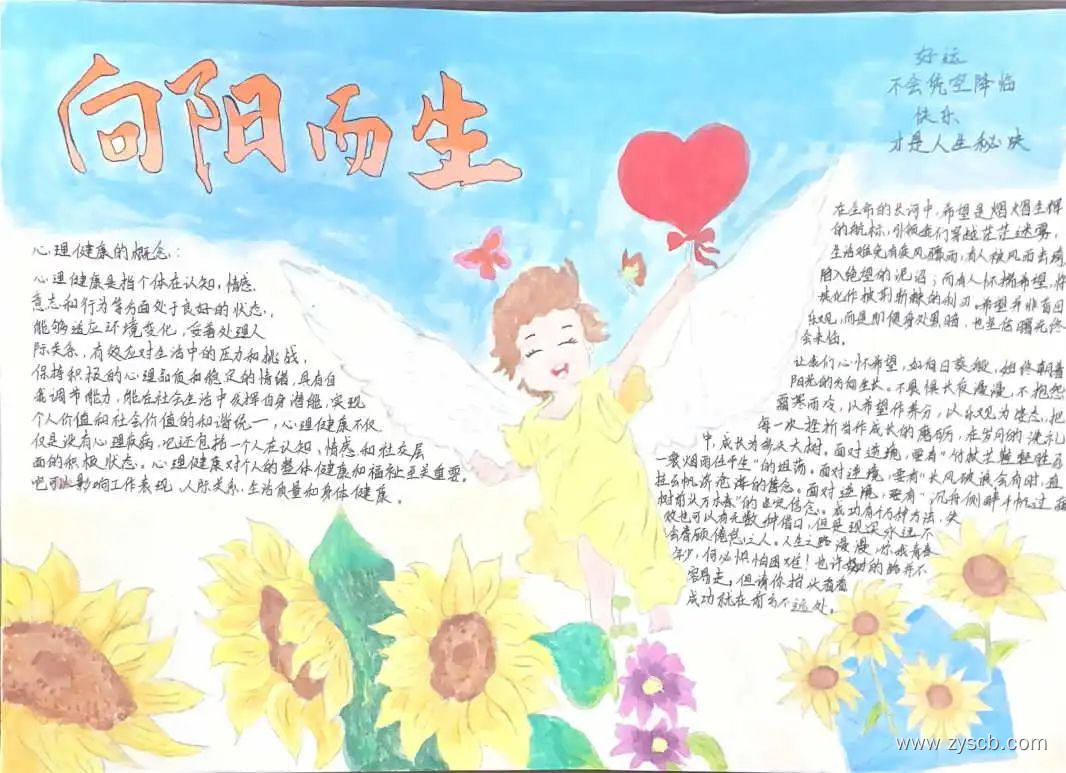 向阳而生
好运
不会凭空降临
快乐
才是人生秘诀
心理健康的概念:
心理健康是指个体在认知,情感,
意志和行为等方面处于良好的状态,
能够适应环境变化,妥善处理人
际关系,有效应对生活中的压力和挑战,
保持积极的心理品质和稳定的情绪,具有自
我调节能力,能在社会生活中发挥自身潜能,实现
个人价值和社会价值的和谐统一,心理健康不仅
仅是没有心理疾病,它还包括一个人在认知、情感和社交层
面的积极状态。心理健康对个人的整体健康和福祉至关重要。
它可以影响工作表现、人际关系、生活质量和身体健康。
在生命的长河中,希望是熠熠生辉
的航标,引领我们穿越茫茫迷雾,
生活难免有疾风骤雨,有人疾风而去
陷入绝望的泥沼;而有人怀揣希望,将
其化作披荆斩棘的利刃。希望并非盲目
乐观,而是即便身处黑暗,也坚信曙光终
会来临。
让我们心怀希望,如向日葵般,始终朝着
阳光的方向生长。不畏惧长夜漫漫,不抱怨
霜寒雨冷,以希望作养分,以乐观为姿态,把
每一次挫折当作成长的磨砺,在岁月的洗礼
中,成长为参天大树。面对逆境,要有"竹杖芒鞋轻胜马
一蓑烟雨任平生"的坦荡。面对逆境,要有"长风破浪会有时,直
挂云帆济沧海的信念。面对逆境,要有"沉舟侧畔千帆过 病
树前头万木春"的坚定信念。成功有千万种方法,失
败也可以有无数种借口,但是现实永远不
会眷顾倦怠之人。人生之路漫漫,你我青春
年少,何必惧怕困难!也许的路并不
容易走,但请你抬头看看
成功就在前方不远处。
www.zyscb.com